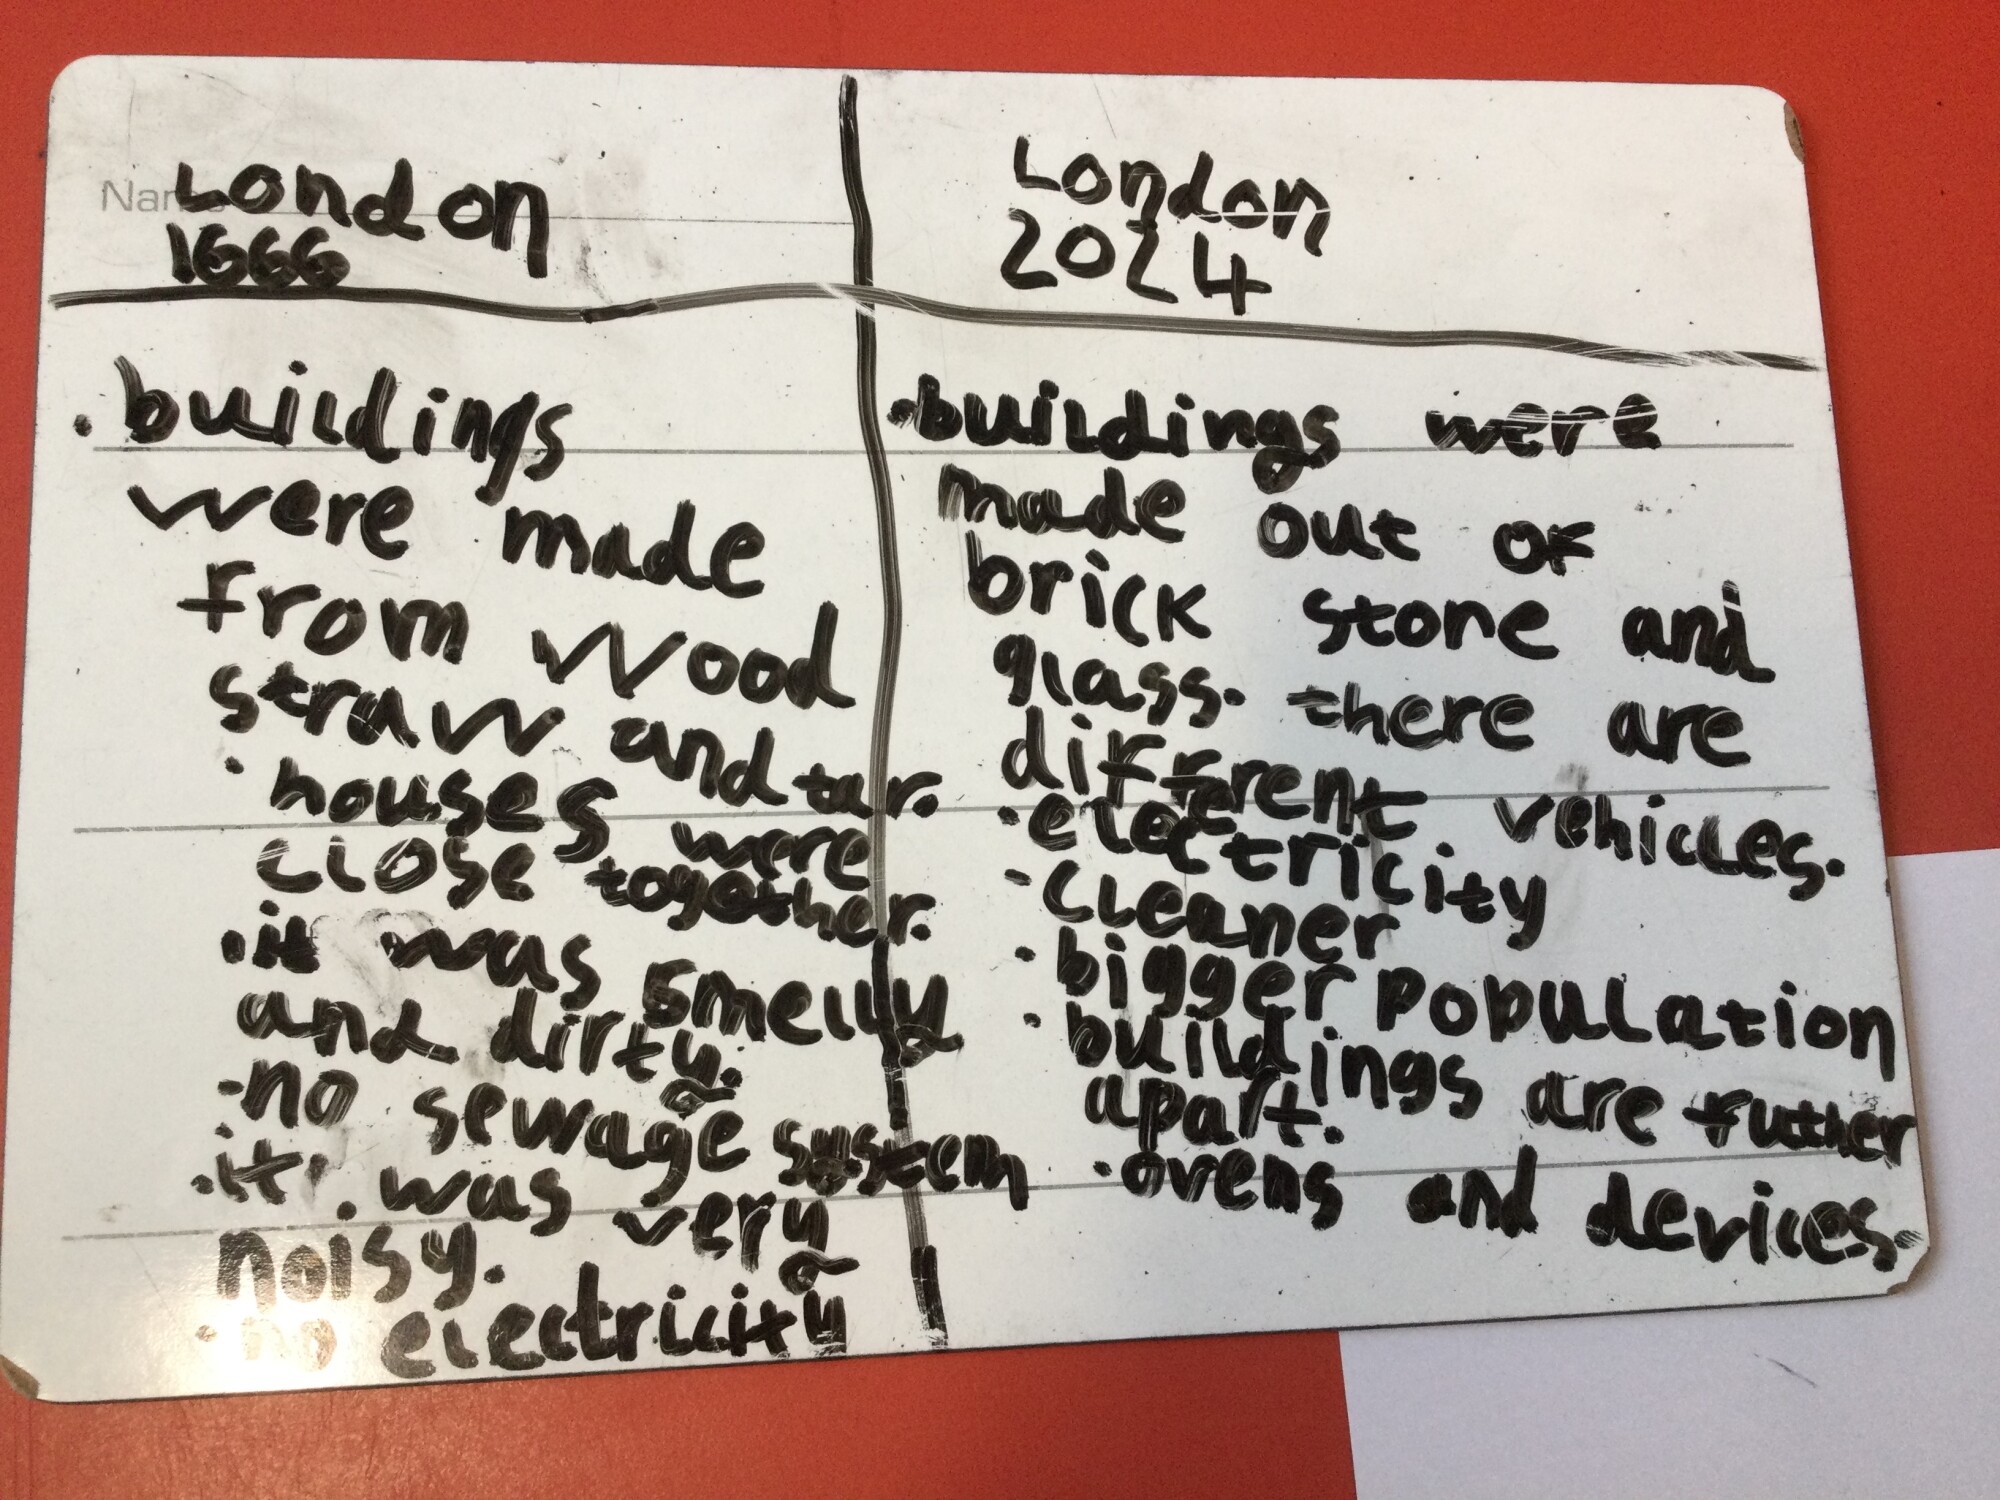 Name
London
1666
. buildings
were made
from wood
straw and tar.
. houses were
close together.
. it was smelly
and dirty.
. no sewage system
. it was very
noisy.
. no electricity
London
2024
. buildings were
made out of
brick stone and
glass. there are
different vehicles.
. electricity
. cleaner
. bigger population
. buildings are futher
apart.
. ovens and devices.